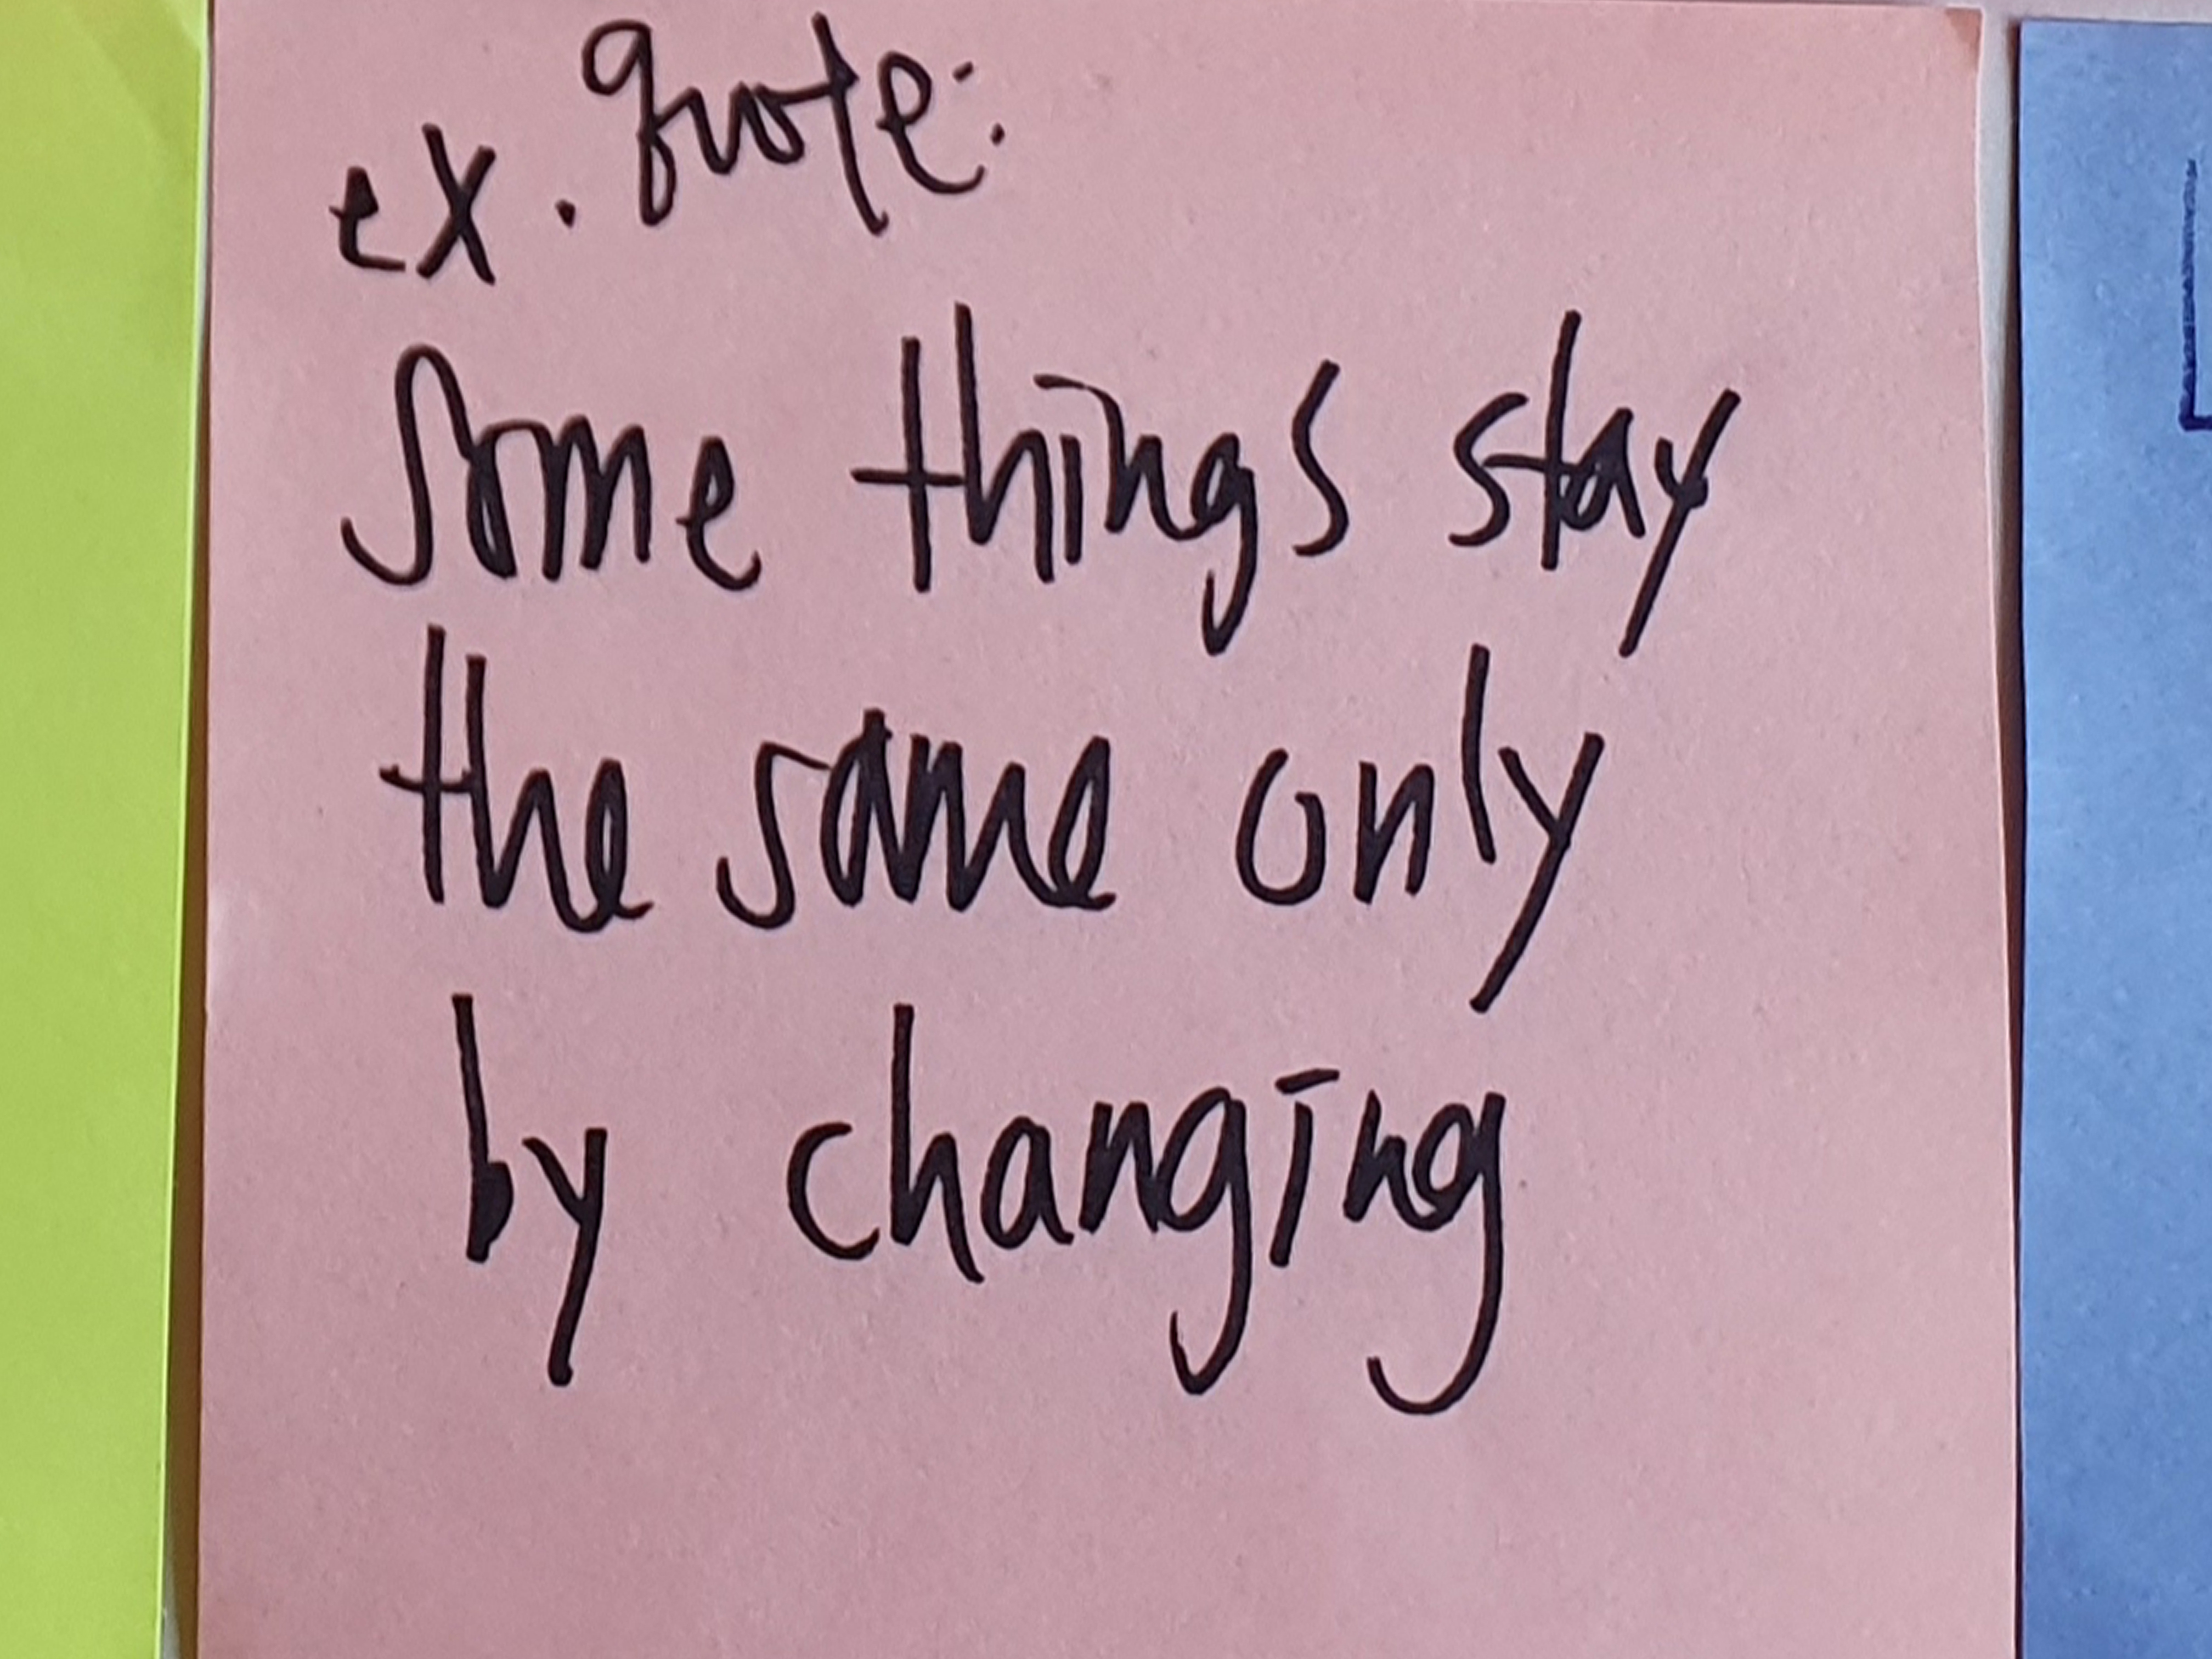 ex. quote:
Some things stay
the same only
by changing